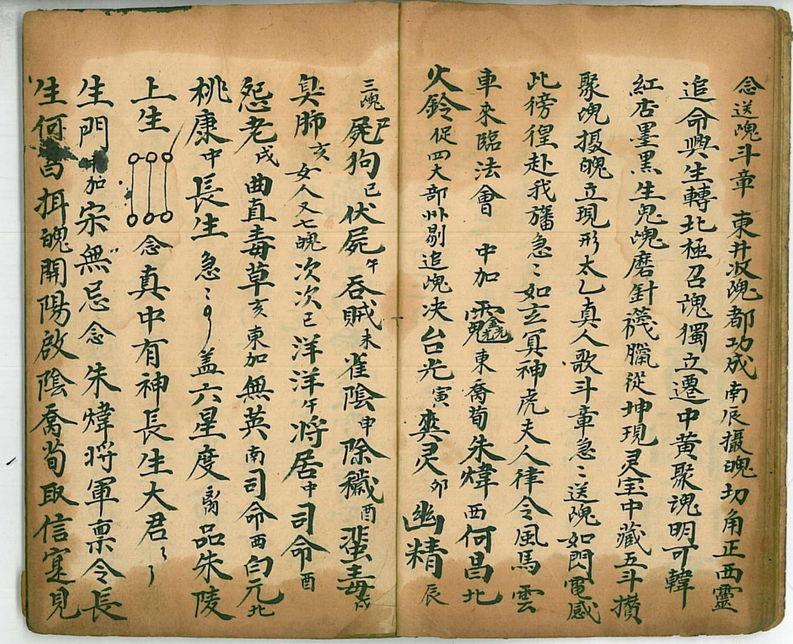 念送魂斗章 東井收魂都功成 南辰攝魄切角正西靈
追命興生轉北極召魂獨立遷中黃聚魂明可韓
紅杏墨黑生鬼魂磨針襪臘從坤現灵宝中藏五斗攢
聚魂攝魄立現形太乙真人歌斗章急〻送魂如閃電感
此徬徨赴我旛急〻如玄冥神虎夫人律令風馬雲
車來臨法會 中加 東喬荀朱煒西何昌北
火鈴促四大部州剔追魂决台光寅爽灵卯幽精辰
三魂屍狗巳伏屍午吞賊未雀陰申除穢酉蜚毒戌
臭肺亥女人又七魄次次巳洋洋午將居中司命酉
怨老戌曲直毒草亥東加無英南司命西白元北
桃康中長生急〻〻盖六星度 品朱陵
上生 念真中有神長生大君〻〻
生門中加宋無忌念朱煒將軍禀令長
生何昌拘魄開陽啟陰喬荀取信寔見